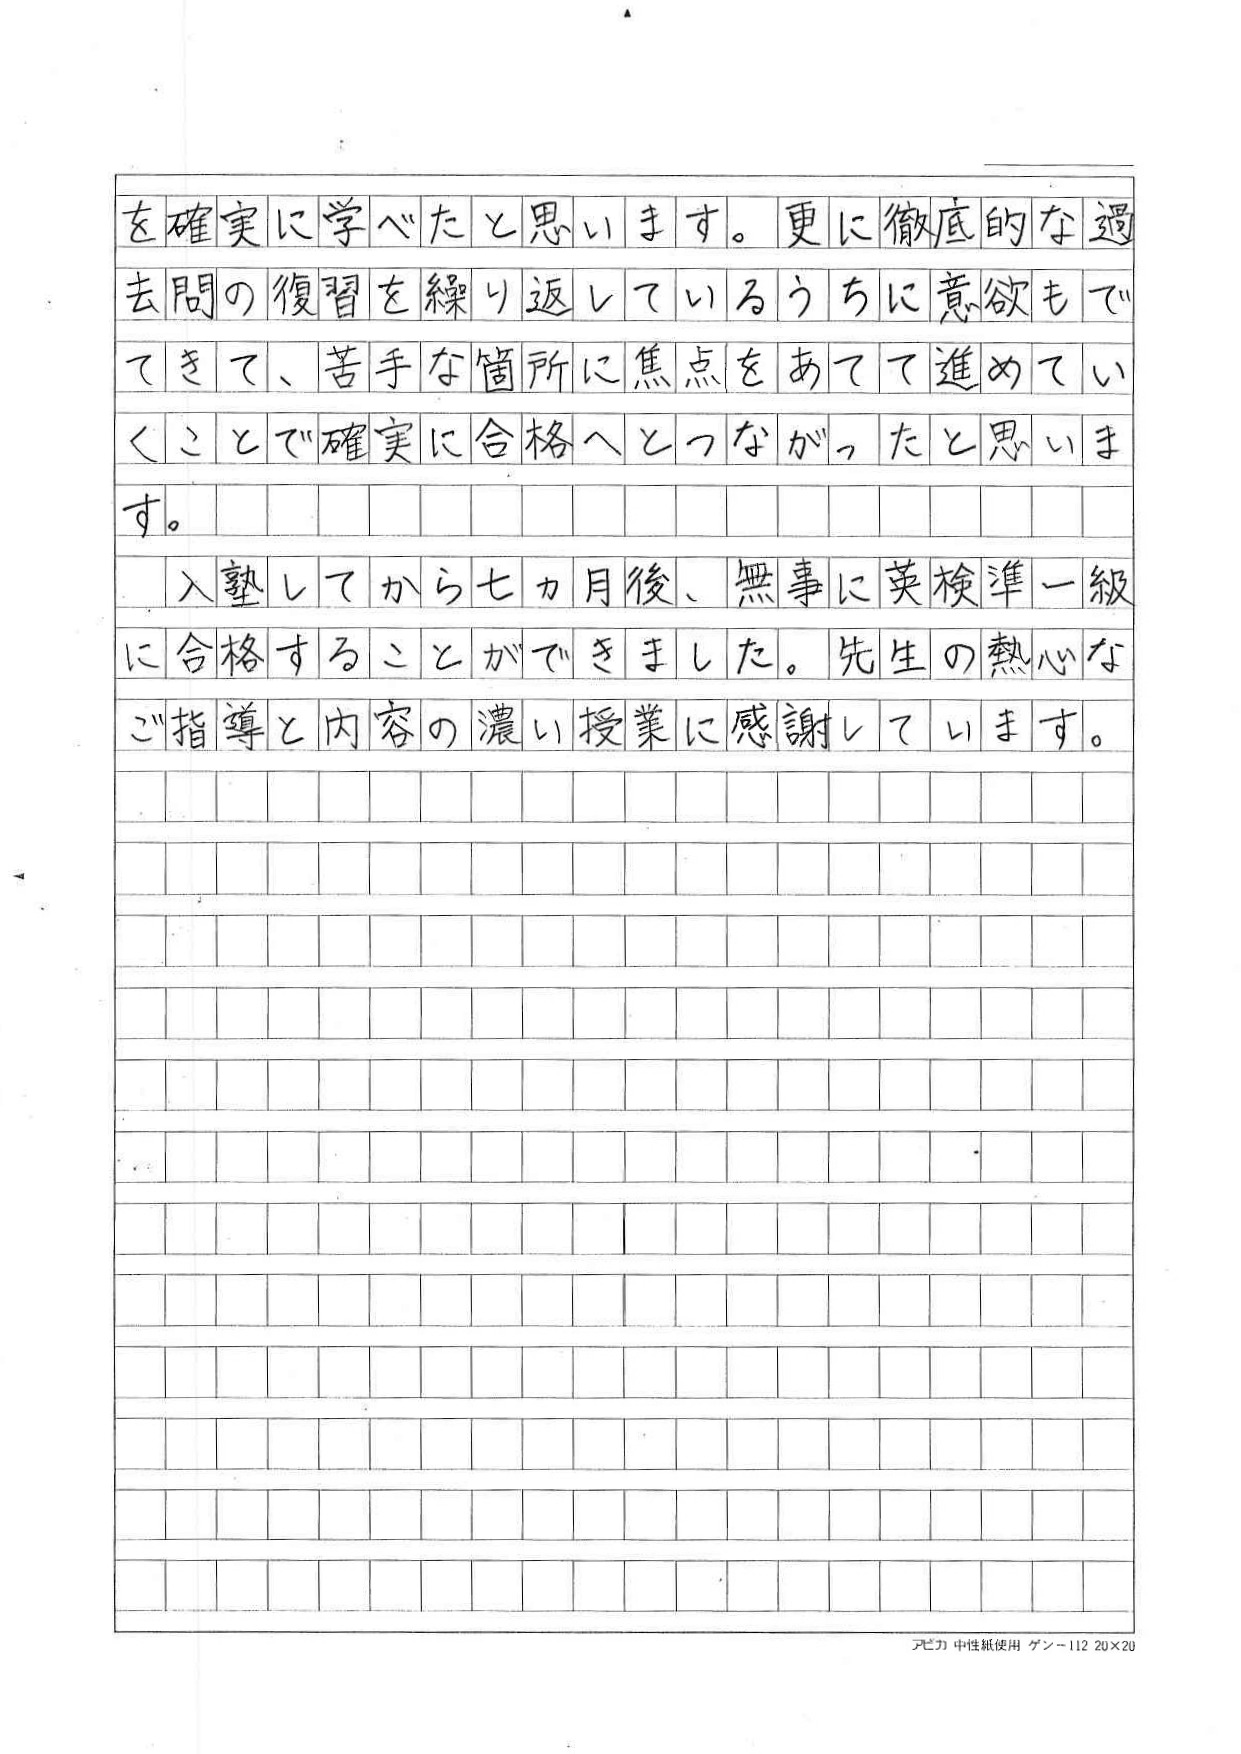 を確実に学べたと思います。更に徹底的な過
去問の復習を繰り返しているうちに意欲もで
てきて、苦手な箇所に焦点をあてて進めてい
くことで確実に合格へとつながったと思いま
す。
入塾してから七ヵ月後、無事に英検準一級
に合格することができました。先生の熱心な
ご指導と内容の濃い授業に感謝しています。
アピカ 中性紙使用 ゲンー112 20×20